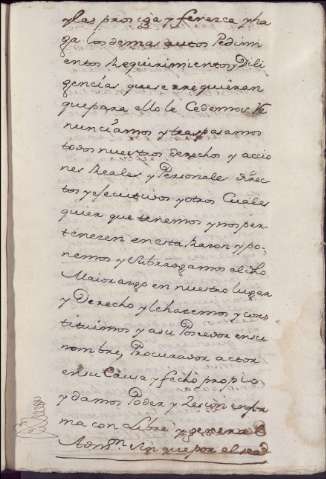 y las prosiga y fenezca y ha
ga los demas autos Pedim
entos Requirimientos y Dili
gencias que se requieran
que para ello le Cedemos Re
nunciamos y traspasamos
todos nuestros derechos y accio
nes Reales y Personales Direc
tos y ejecutivos y otros Cuales
quier que tenemos y nos per
tenecen en esta Razon y po
nemos y Subrrogamos al dho
Maiorasgo en nuestro lugar
y Derecho y le hacemos y cons
tituimos y a su Posedor en su
nombre, Procurador actor
en su Causa y fecho propio
y damos Poder y Zesion en for
ma con Libre y general
Admon. sin que por el